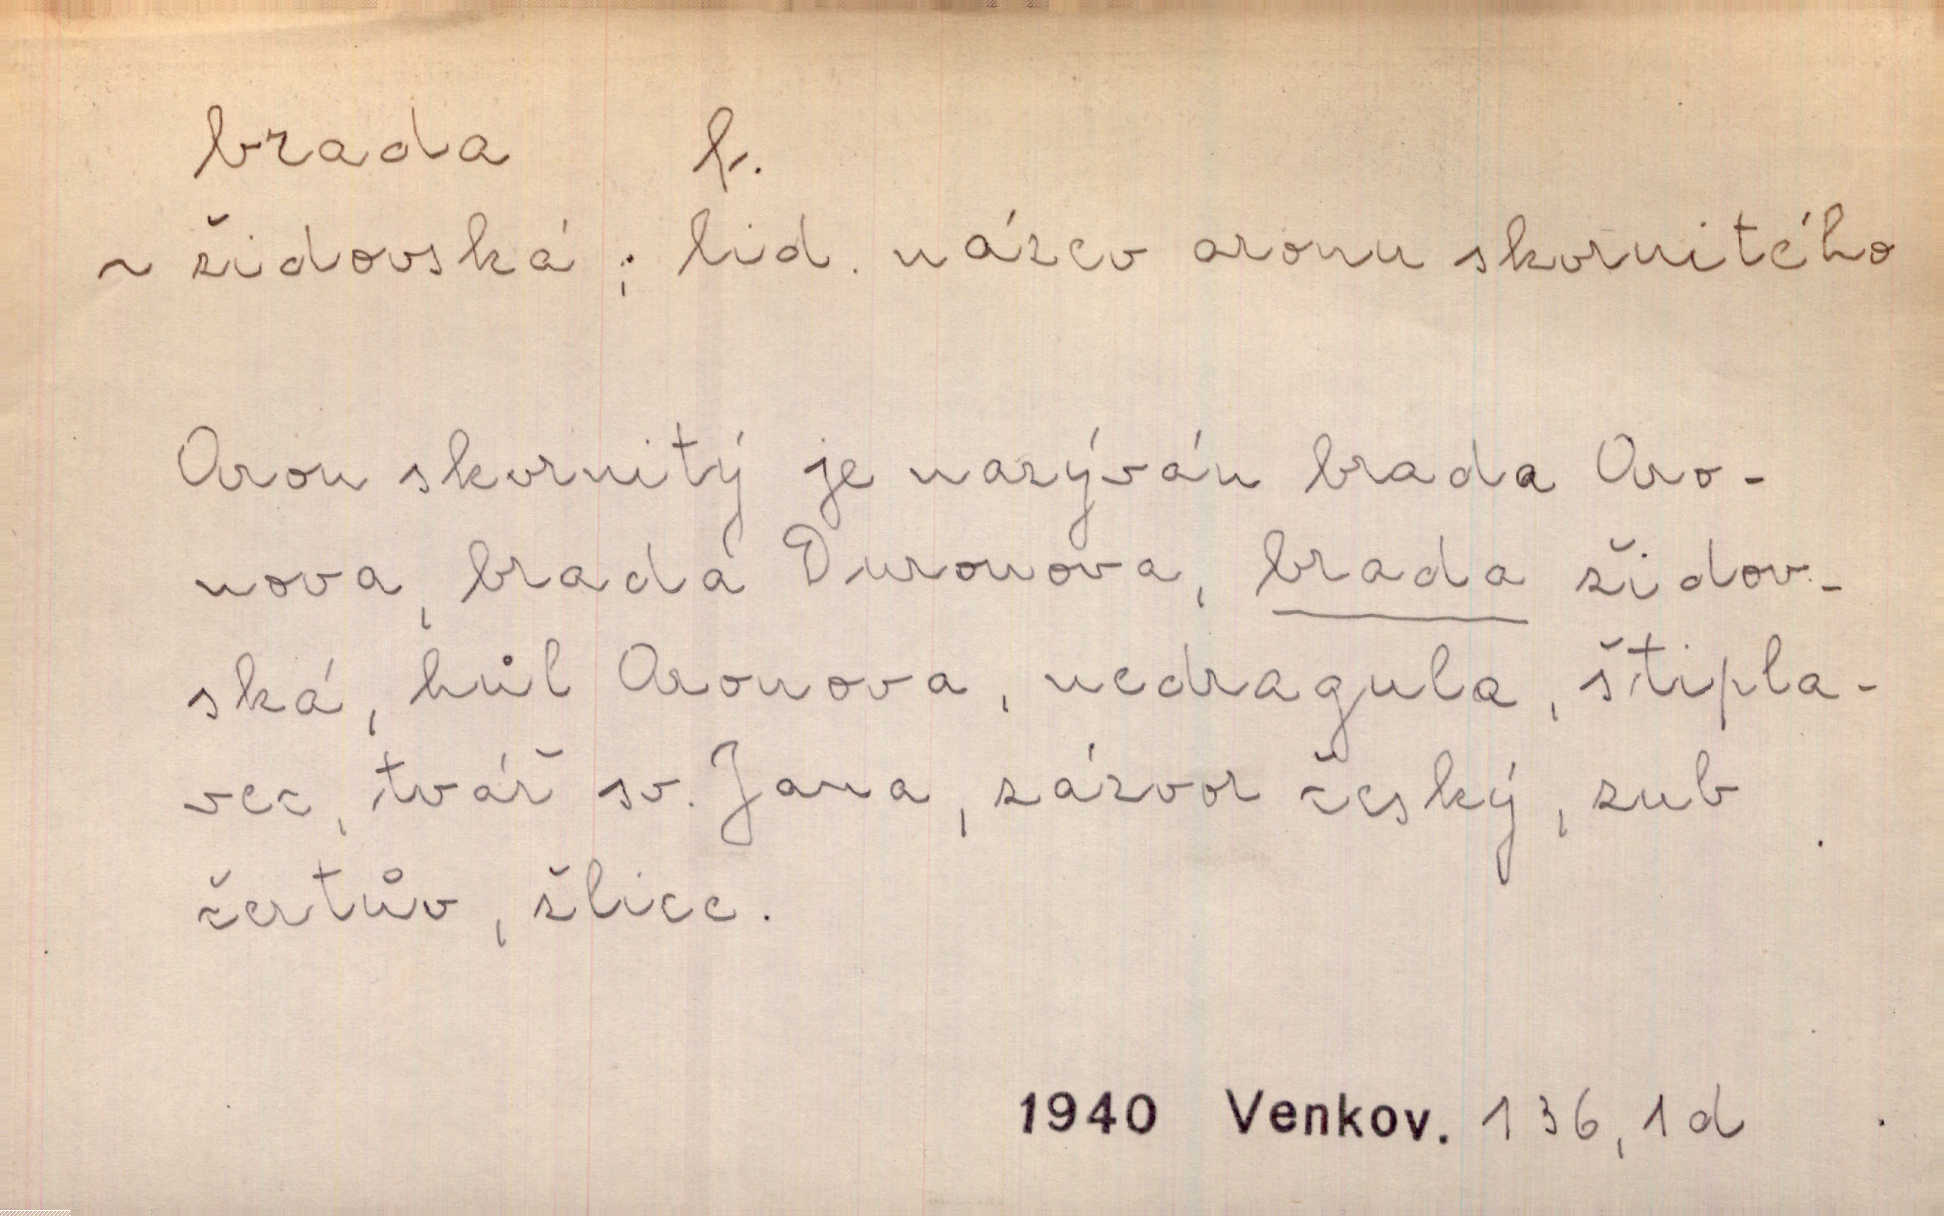 brada f.
~ židovská; lid. název aronu skvrnitého
Aron skvrnitý je nazýván brada Aro-
nova, brada Duronova, brada židov-
ská, hůl Aronova, nedragula, štipla-
vec, tvář sv. Jana, zázvor český, zub
čertův, žlice.
1940 Venkov. 136, 1d